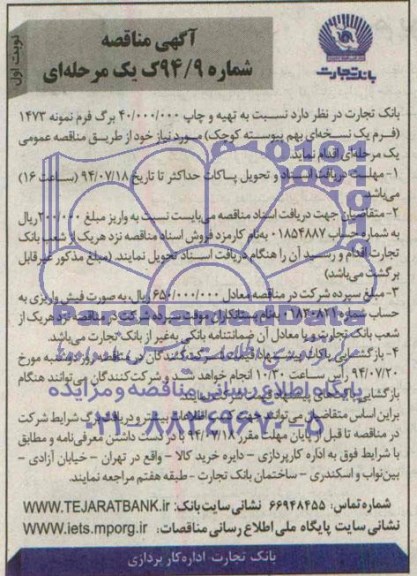 نوبت اول
آگهی مناقصه
شماره ۹۴/۹ک یک مرحله‌ای
بانک تجارت
بانک تجارت در نظر دارد نسبت به تهیه و چاپ ۴۰/۰۰۰/۰۰۰ برگ فرم نمونه ۱۴۷۳
(فرم یک نسخه‌ای بهم پیوسته کوچک) مورد نیاز خود از طریق مناقصه عمومی
یک مرحله‌ای اقدام نماید.
۱- مهلت دریافت اسناد و تحویل پاکات حداکثر تا تاریخ ۹۴/۰۷/۱۸ (ساعت ۱۶)
می‌باشد.
۲- متقاضیان جهت دریافت اسناد مناقصه می‌بایست نسبت به واریز مبلغ ۲۰۰/۰۰۰ ریال
به شماره حساب ۰۱۸۵۴۸۸۷ به‌نام کارمزد فروش اسناد مناقصه نزد هریک از شعب بانک
تجارت اقدام و رسید آن را هنگام دریافت اسناد تحویل نمایند. (مبلغ مذکور غیرقابل
برگشت می‌باشد)
۳- مبلغ سپرده شرکت در مناقصه معادل ۶۵۰/۰۰۰/۰۰۰ ریال، به صورت فیش واریزی به
حساب شماره ۰۱۸۳۰۸۲۱ به‌نام بستانکاران موقت سپرده شرکت در مناقصه نزد هریک از
شعب بانک تجارت و یا معادل آن ضمانتنامه بانکی به‌غیر از بانک تجارت می‌باشد.
۴- بازگشایی پاکات مناقصه مورخ
۹۴/۰۷/۲۰ رأس ساعت ۱۰/۳۰ انجام خواهد شد و شرکت کنندگان می‌توانند هنگام
بازگشایی پاکت‌های پیشنهاد قیمت
براین اساس متقاضیان می‌توانند جهت کسب اطلاعات بیشتر و دریافت برگ شرایط شرکت
در مناقصه تا قبل از پایان مهلت مقرر ۹۴/۰۷/۱۸ با در دست داشتن معرفی‌نامه و مطابق
با شرایط فوق به اداره کارپردازی - دایره خرید کالا - واقع در تهران - خیابان آزادی -
بین نواب و اسکندری - ساختمان بانک تجارت - طبقه هفتم مراجعه نمایند.
شماره تماس: ۶۶۹۴۸۴۵۵ نشانی سایت بانک: WWW.TEJARATBANK.ir
نشانی سایت پایگاه ملی اطلاع رسانی مناقصات: WWW.iets.mporg.ir
بانک تجارت - اداره کار پردازی
ParsNamadData
پایگاه اطلاع رسانی مناقصه و مزایده
۰۲۱-۸۸۳۴۹۶۷۰-۵